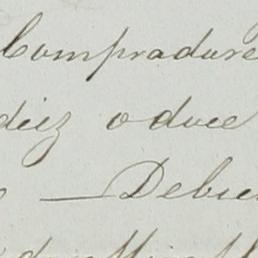 Compradore
diez o duce
— Debie